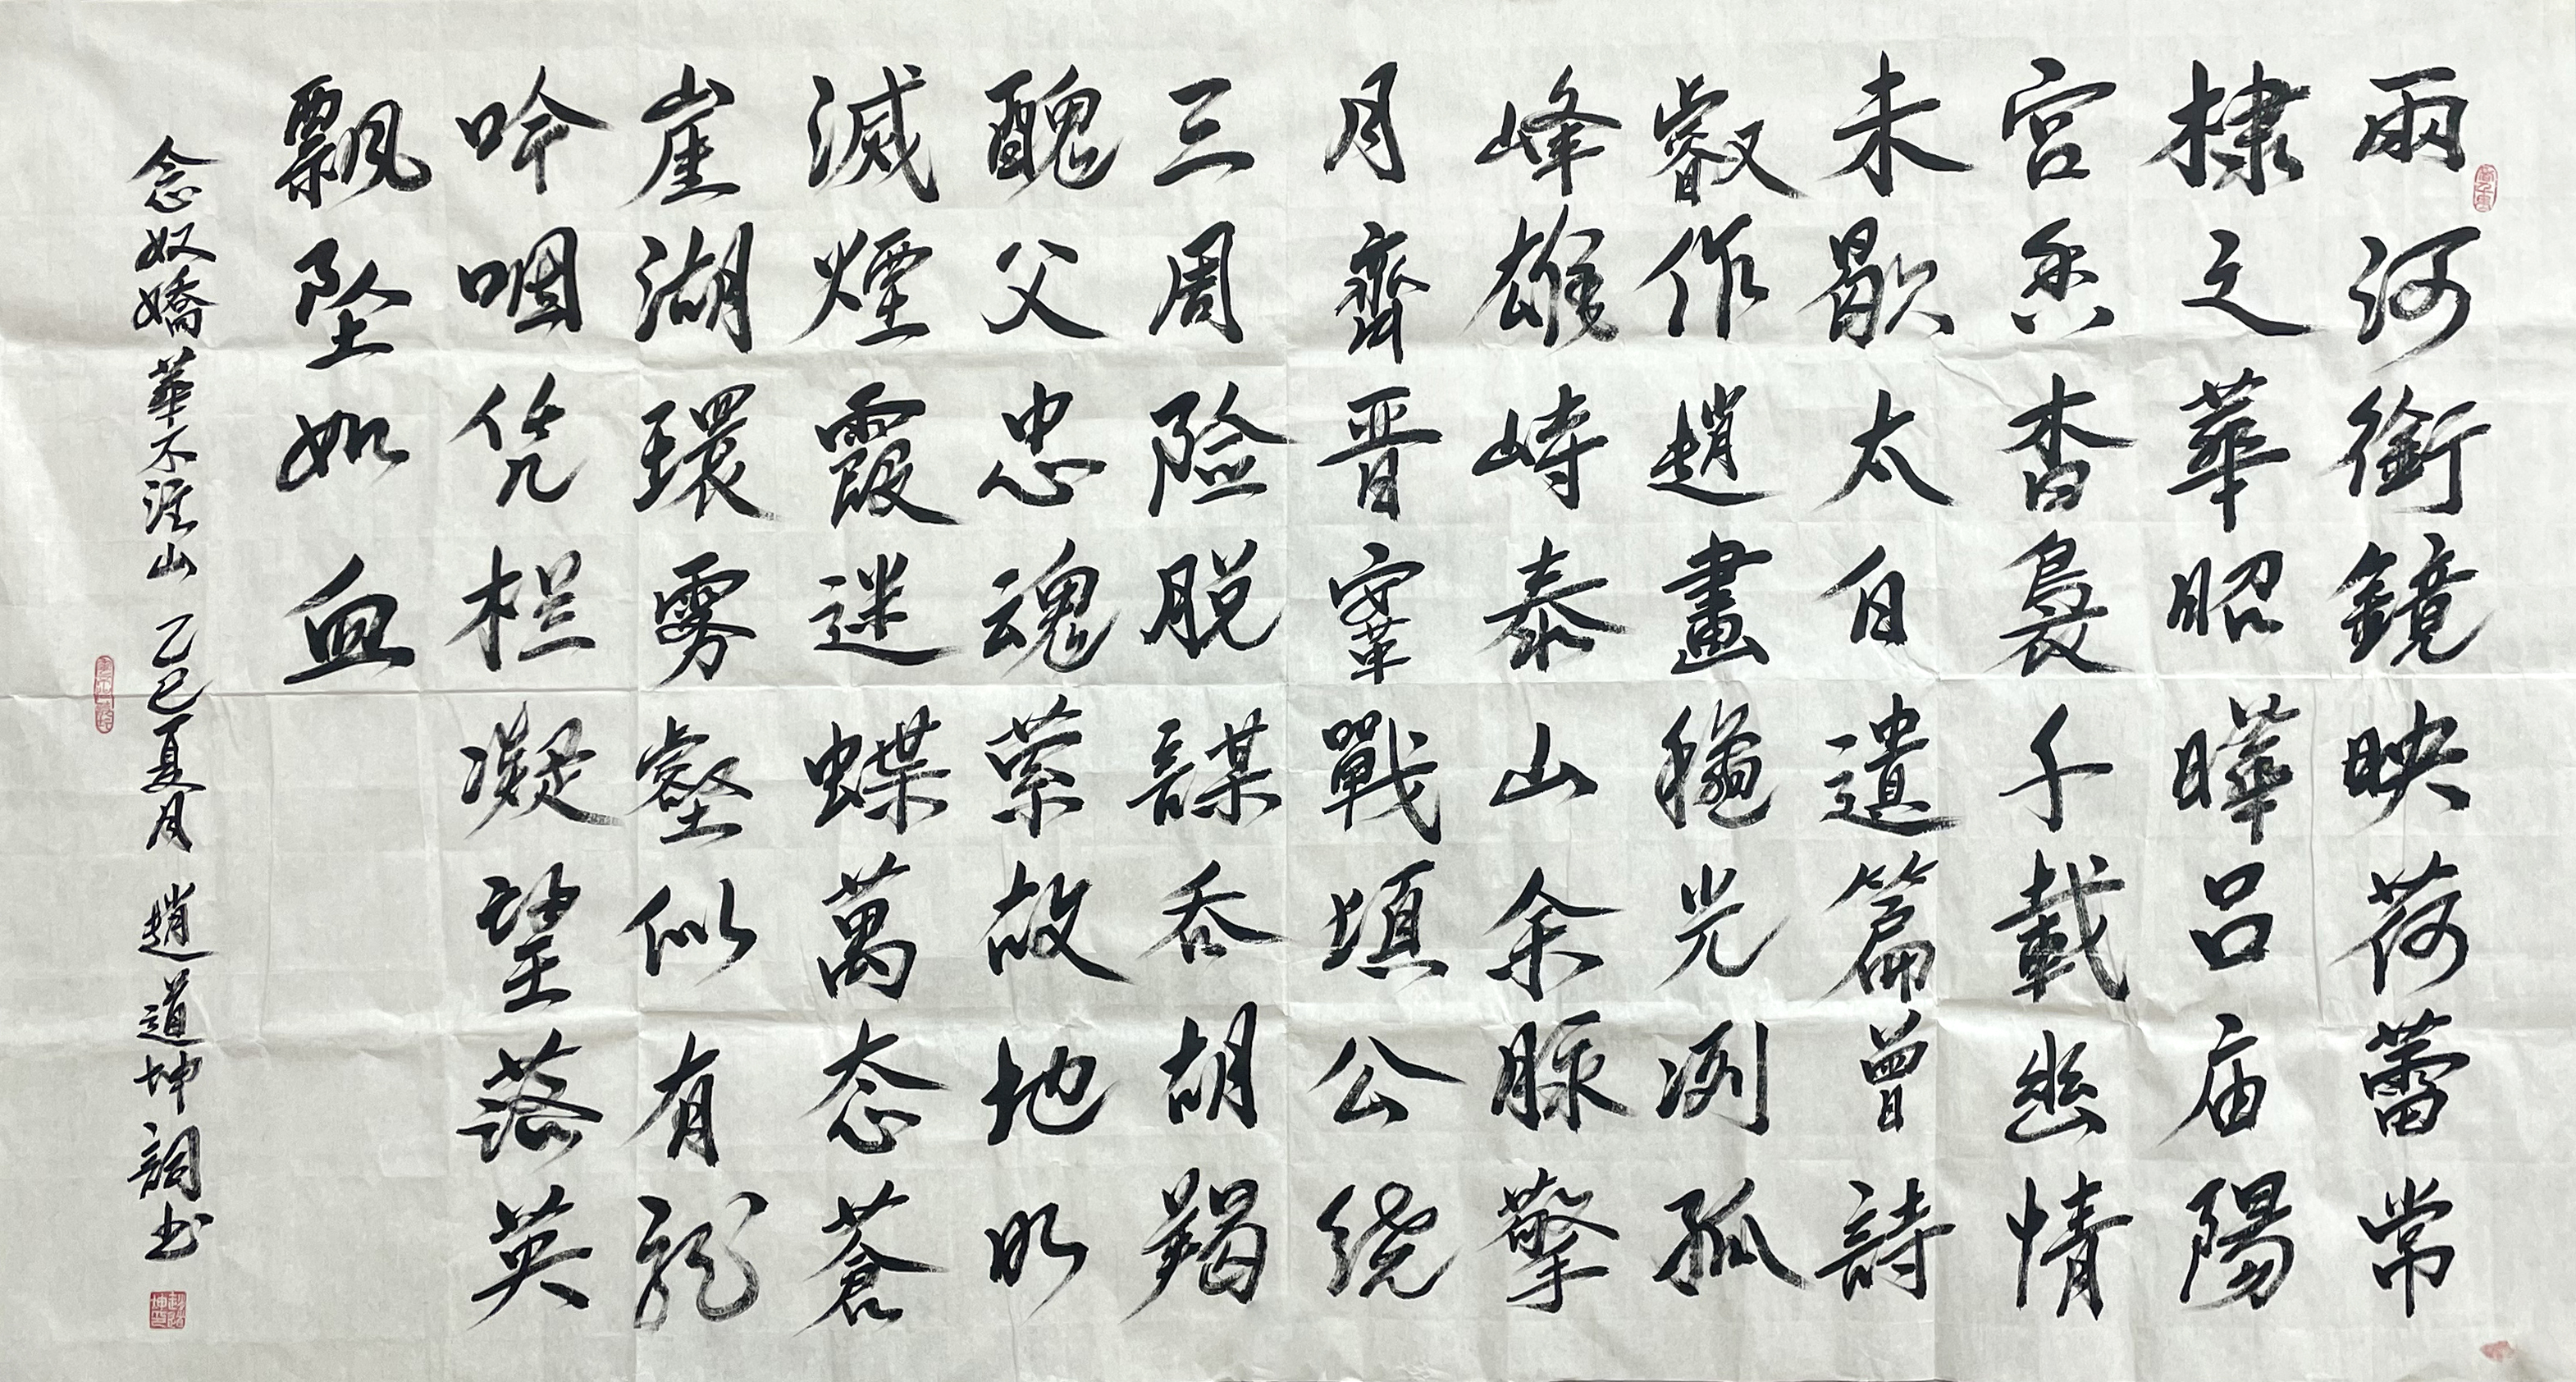 兩河銜鏡映荷蕾常
棣之華昭曄呂庙陽
宫香杳裊千載幽情
未歇太白遺篇曾詩
叡作趙畫穐光冽孤
峰雄峙泰山余脈擎
月齊晋鞌戰填公绕
三周险脱謀吞胡羯
醜父忠魂萦故地昭
滅煙霞迷蝶萬态蒼
崖湖環雾壑似有龍
吟咽凭栏凝望落英
飄坠如血
念奴嬌華不注山 乙巳夏月 趙道坤詞书